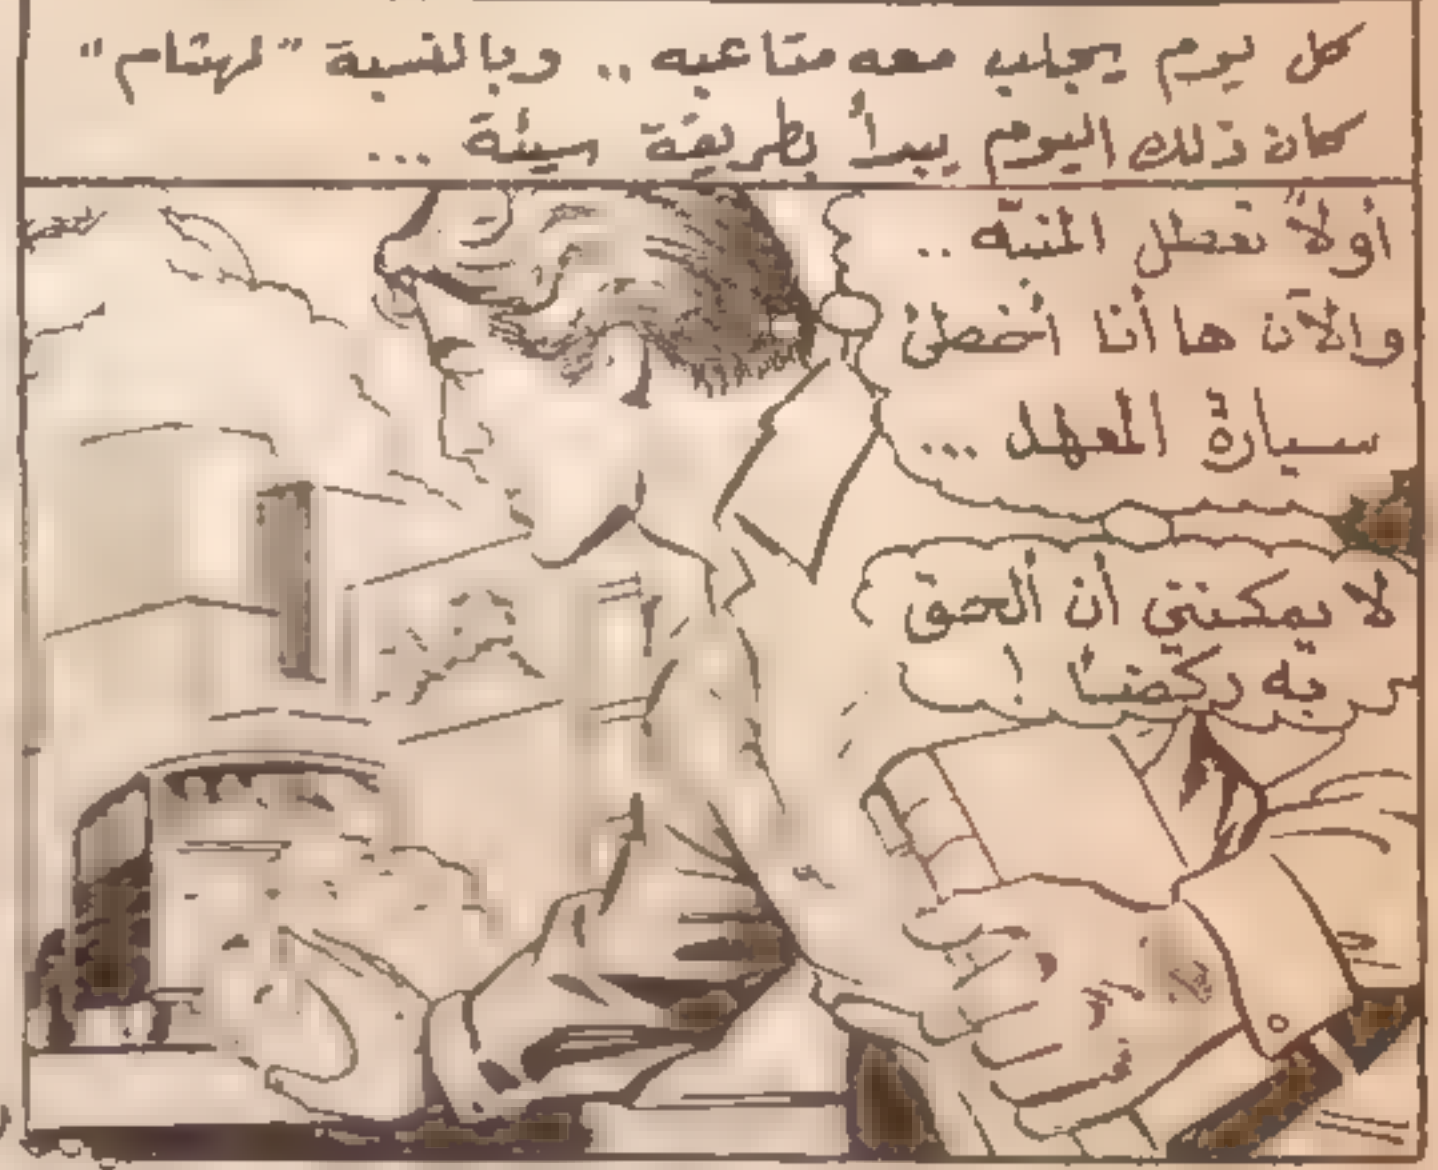 كل يوم يجلب معه متاعبه .. وبالنسبة "لهشام"
كان ذلك اليوم يبدأ بطريقة سيئة ...
أولاً تعطل المنبّه ..
والآن ها أنا أخطئ
سيارة المعهد ...
لا يمكنني أن ألحق
به ركضاً !